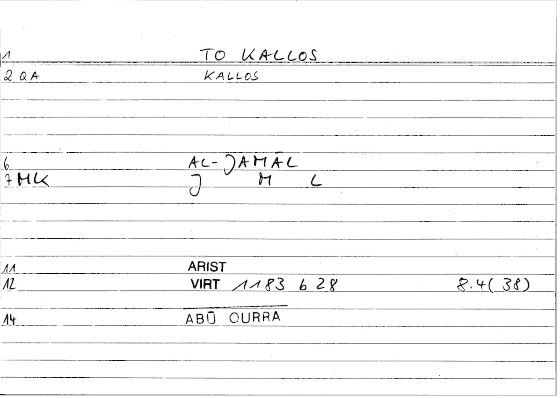 1 TO KALLOS
2 QA KALLOS
6 AL-JAMĀL
7 MK J M L
11 ARIST
12 VIRT 1183 b 28 8.4(38)
14 ABŪ QURRA